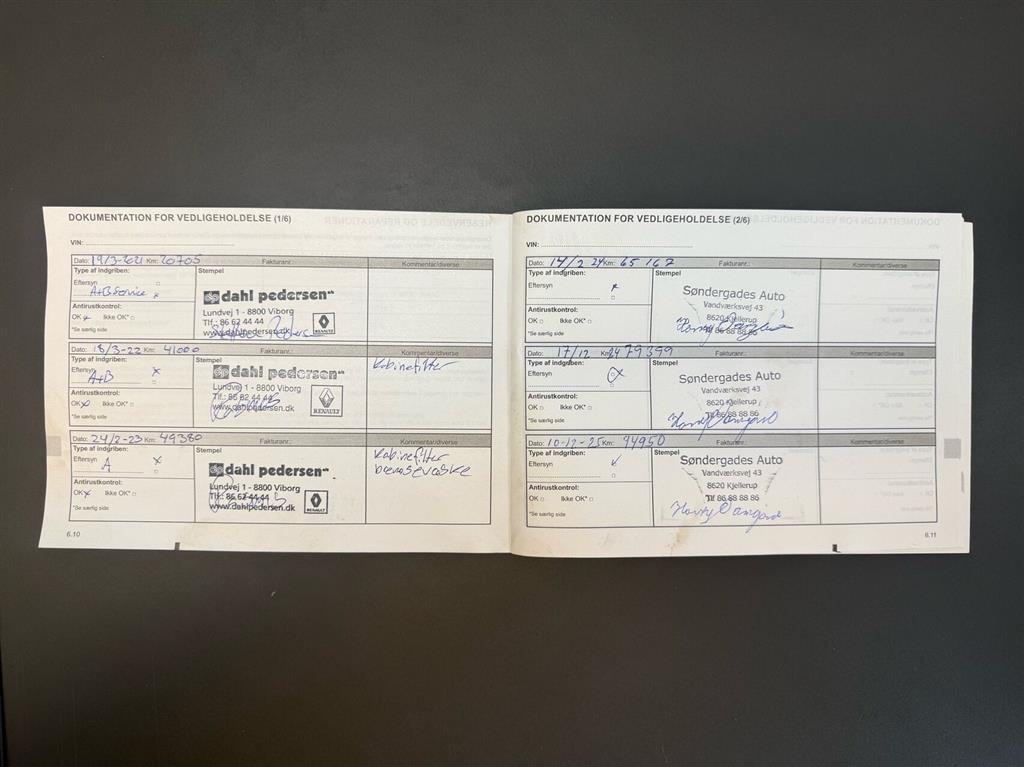 DOKUMENTATION FOR VEDLIGEHOLDELSE (1/6)
VIN:
Dato: 19/3-2021 Km: 20705 Fakturanr.: Kommentar/diverse
Type af indgriben: Stempel
Eftersyn
A+B Service
Antirustkontrol:
OK Ikke OK*
*Se særlig side
dahl pedersen
Lundvej 1 - 8800 Viborg
Tlf.: 86 62 44 44
www.dahlpedersen.dk
RENAULT
Dato: 18/3-22 Km: 41000 Fakturanr.: Kommentar/diverse
Type af indgriben: Stempel
Eftersyn x
A+B
Antirustkontrol:
OK x Ikke OK*
*Se særlig side
dahl pedersen
Lundvej 1 - 8800 Viborg
Tlf.: 86 62 44 44
www.dahlpedersen.dk
RENAULT
Kabinefilter
Dato: 24/2-23 Km: 49380 Fakturanr.: Kommentar/diverse
Type af indgriben: Stempel
Eftersyn x
A
Antirustkontrol:
OK x Ikke OK*
*Se særlig side
dahl pedersen
Lundvej 1 - 8800 Viborg
Tlf.: 86 62 44 44
www.dahlpedersen.dk
RENAULT
Kabinefilter
bremsevæske
6.10
DOKUMENTATION FOR VEDLIGEHOLDELSE (2/6)
VIN:
Dato: 14/2 24 Km: 65 167 Fakturanr.: Kommentar/diverse
Type af indgriben: Stempel
Eftersyn x
Antirustkontrol:
OK Ikke OK*
*Se særlig side
Søndergades Auto
Vandværksvej 43
8620 Kjellerup
Tlf 86 88 88 86
Dato: 17/12 24 Km: 79399 Fakturanr.: Kommentar/diverse
Type af indgriben: Stempel
Eftersyn x
Antirustkontrol:
OK Ikke OK*
*Se særlig side
Søndergades Auto
Vandværksvej 43
8620 Kjellerup
Tlf 86 88 88 86
Dato: 10-12-25 Km: 94950 Fakturanr.: Kommentar/diverse
Type af indgriben: Stempel
Eftersyn
Antirustkontrol:
OK Ikke OK*
*Se særlig side
Søndergades Auto
Vandværksvej 43
8620 Kjellerup
Tlf 86 88 88 86
6.11